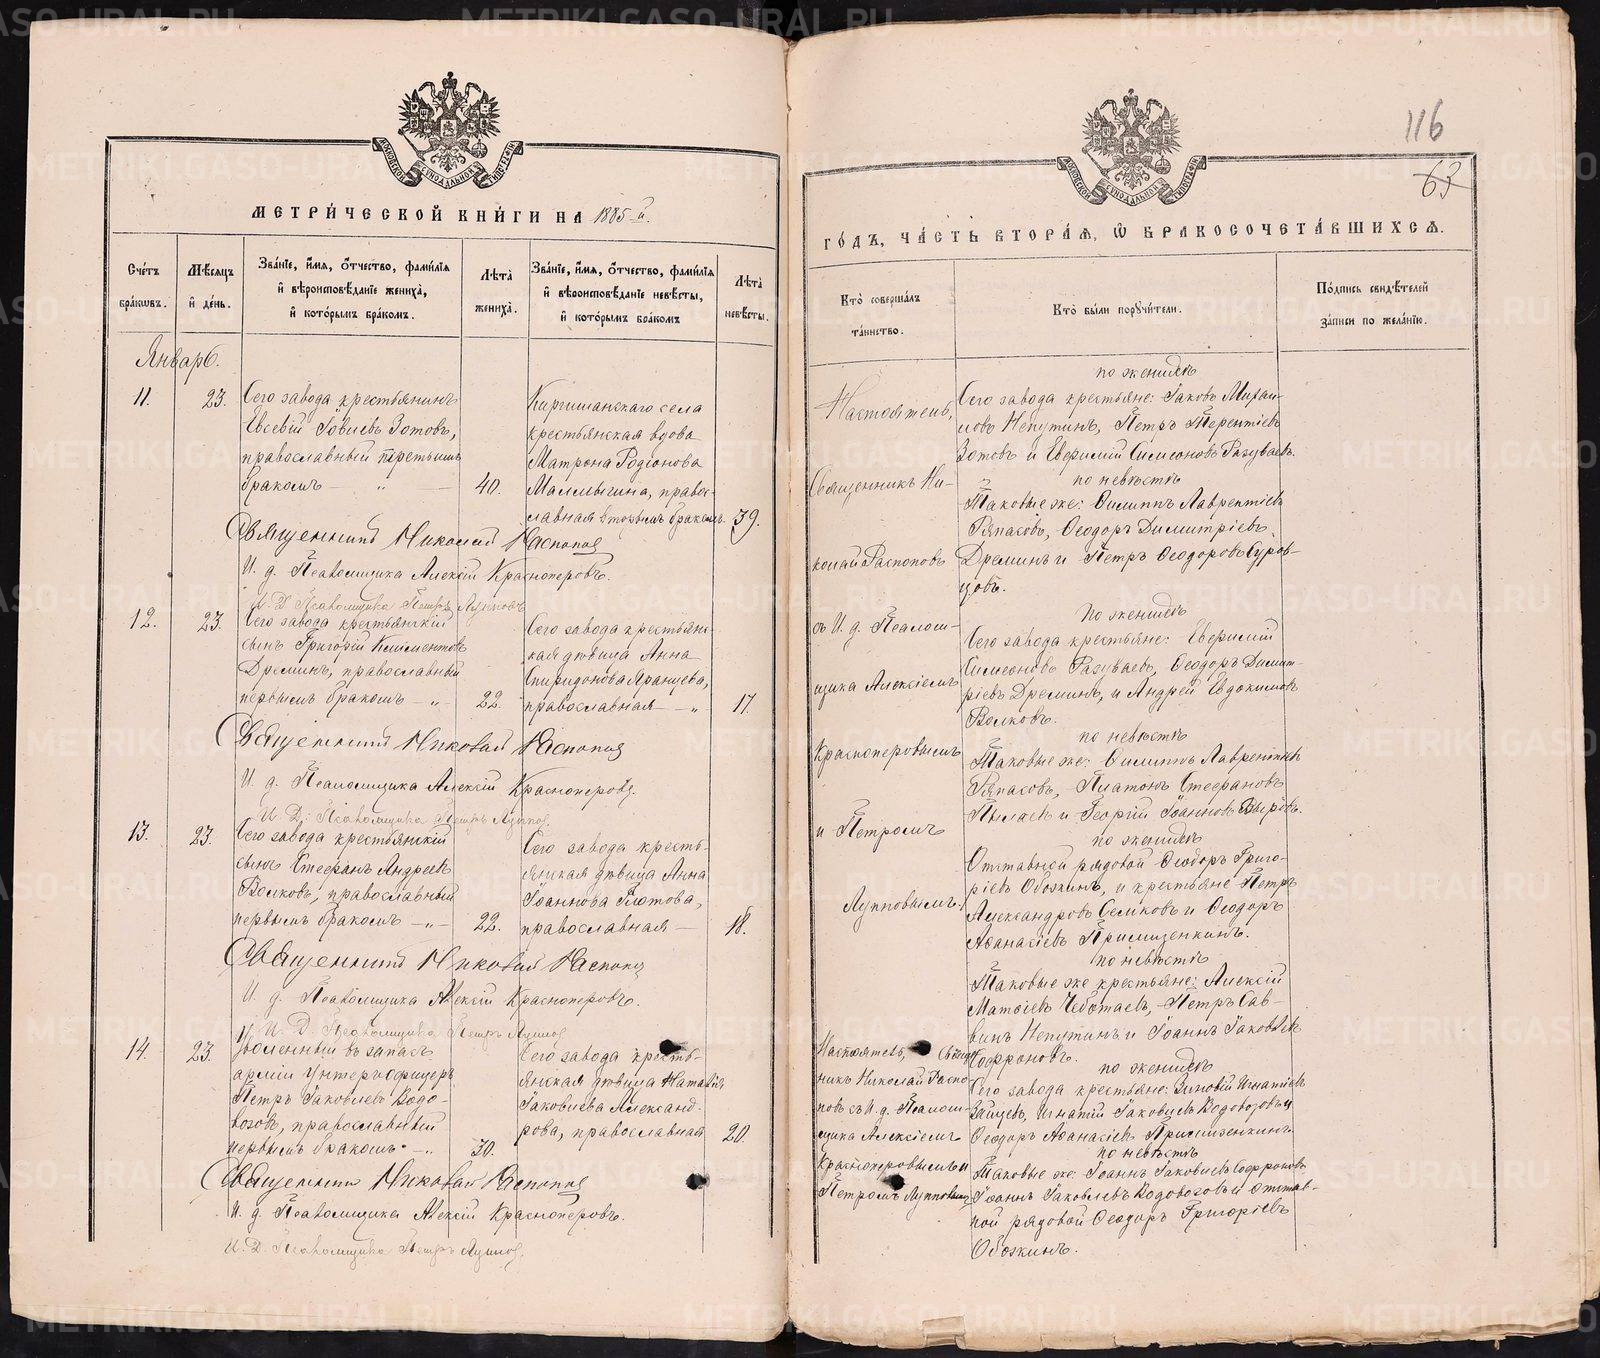 МЕТРИ́ЧЕСКОЙ КНИ́ГИ НА 1885-й.
Сче́тъ бра́ковъ.
Мѣ́сяцъ и де́нь.
Зва́нїе, и́мя, о́тчество, фами́лїя и вѣроисповѣ́данїе жениха̀, и кото́рымъ бра́комъ.
Лѣта̀ жениха̀.
Зва́нїе, и́мя, о́тчество, фами́лїя и вѣроисповѣ́данїе невѣ́сты, и кото́рымъ бра́комъ
Лѣта̀ невѣ́сты.
Январь.
11.
23.
Сего завода крестьянинъ
Евсевій Іовлевъ Зотовъ,
православный третьимъ
бракомъ — „ —
40.
крестьянская вдова
Матрона Родіонова
Малмыгина, право-
славная вторымъ бракомъ.
39.
Священникъ Николай Распопов
И. д. Псаломщика Алексій Красноперовъ.
И. Д. Псаломщика Петръ Луппов
12.
23.
Сего завода крестьянскій
сынъ Григорій Климентовъ
Дреминъ, православный
первымъ бракомъ — „ —
22.
Сего завода крестьян-
ская дѣвица Анна
Спиридонова Яранцева,
православная — „
17.
Священникъ Николай Распопов
И. д. Псаломщика Алексій Красноперовъ.
И. Д. Псаломщика Петръ Луппов.
13.
23.
Сего завода крестьянскій
сынъ Стефанъ Андреевъ
Волковъ, православный
первымъ бракомъ — „ —
22.
Сего завода кресть-
янская дѣвица Анна
Іоаннова Глотова,
православная —
18.
Священникъ Николай Распопов
И. д. Псаломщика Алексій Красноперовъ.
И. Д. Псаломщика Петръ Луппов
14.
23.
Уволенный въ запасъ
арміи унтеръ-офицеръ
Петръ Іаковлевъ Водо-
возовъ, православный
первымъ бракомъ — „
30.
Сего завода кресть-
янская дѣвица Наталія
Іаковлева Александ-
рова, православная
20.
Священникъ Николай Распопов
И. д. Псаломщика Алексій Красноперовъ.
И. Д. Псаломщика Петръ Луппов.
116
63
ГО́ДЪ, ЧА́СТЬ ВТОРА́Я, Ѡ БРАКОСОЧЕТА́ВШИХСЯ.
Кто̀ соверша́лъ та́инство.
Кто̀ бы́ли поручи́тели.
По́дпись свидѣ́телей за́писи по жела́нїю.
Настоятель,
Священникъ Ни-
колай Распоповъ
съ И. д. Псалом-
щика Алексіемъ
Красноперовымъ
и Петромъ
Лупповымъ.
по женихѣ
Сего завода крестьяне: Іаковъ Михаи-
ловъ Непутинъ, Петръ Терентіевъ
Зотовъ и Евфимій Симеоновъ Разуваевъ.
по невѣстѣ
Таковые же: Филиппъ Лаврентіевъ
Ряпасовъ, Ѳеодоръ Димитріевъ
Дреминъ и Петръ Ѳеодоровъ Суров-
цовъ.
По женихѣ
Сего завода крестьяне: Евфимій
Симеоновъ Разуваевъ, Ѳеодоръ Димит-
ріевъ Дреминъ, и Андрей Евдокимовъ
Волковъ.
по невѣстѣ
Таковые же: Филиппъ Лаврентіевъ
Ряпасовъ, Платонъ Стефановъ
Пылаевъ и Георгій Іоанновъ
по женихѣ
Отставной рядовой Ѳеодоръ Григо-
ріевъ Обожинъ, и крестьяне Петръ
Александровъ Селковъ и Ѳеодоръ
Аѳанасіевъ
по невѣстѣ
Таковые же крестьяне: Алексій
Матѳіевъ Чеботаевъ, Петръ Сав-
винъ Непутинъ и Іоаннъ Іаковлевъ
Софроновъ.
Настоятель, Священ-
никъ Николай Распо-
повъ съ И. д. Псалом-
щика Алексіемъ
Красноперовымъ и
Петромъ Лупповымъ
по женихѣ
Сего завода крестьяне: Зиновій Игнатіевъ
Зайцевъ, Игнатій Іаковлевъ Водовозовъ и
Ѳеодоръ Аѳанасіевъ
по невѣстѣ
Таковые же: Іоаннъ Іаковлевъ Софроновъ
Іоаннъ Іаковлевъ Водовозовъ и отстав-
ной рядовой Ѳеодоръ Григоріевъ
Обожинъ.
METRIKI.GASO-URAL.RU